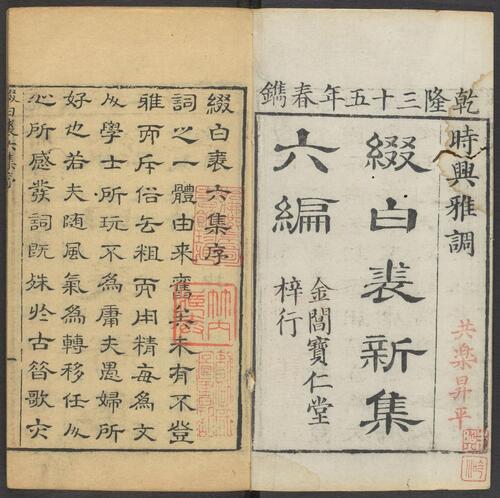 乾隆三十五年春鐫
時興雅調
綴白裘新集
六編
金閶寶仁堂
梓行
共樂昇平
綴白裘六集序
詞之一體由來舊矣未有不登
雅而斥俗去粗而用精每為文
人學士所玩不為庸夫愚婦所
好也若夫随風氣為轉移任人
心所感發詞既殊於古昔歌亦